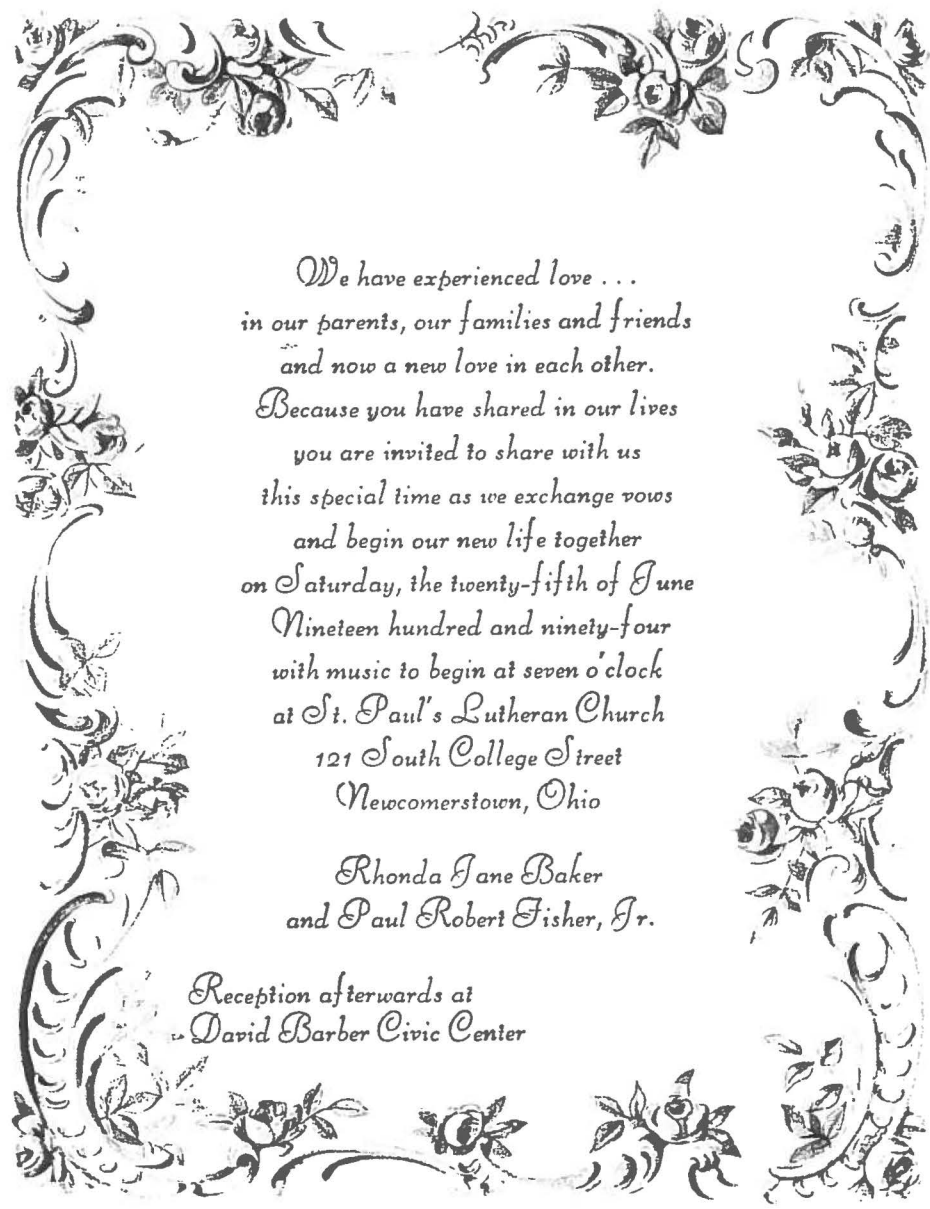 We have experienced love ...
in our parents, our families and friends
and now a new love in each other.
Because you have shared in our lives
you are invited to share with us
this special time as we exchange vows
and begin our new life together
on Saturday, the twenty-fifth of June
Nineteen hundred and ninety-four
with music to begin at seven o'clock
at St. Paul's Lutheran Church
121 South College Street
Newcomerstown, Ohio
Rhonda Jane Baker
and Paul Robert Fisher, Jr.
Reception afterwards at
David Barber Civic Center